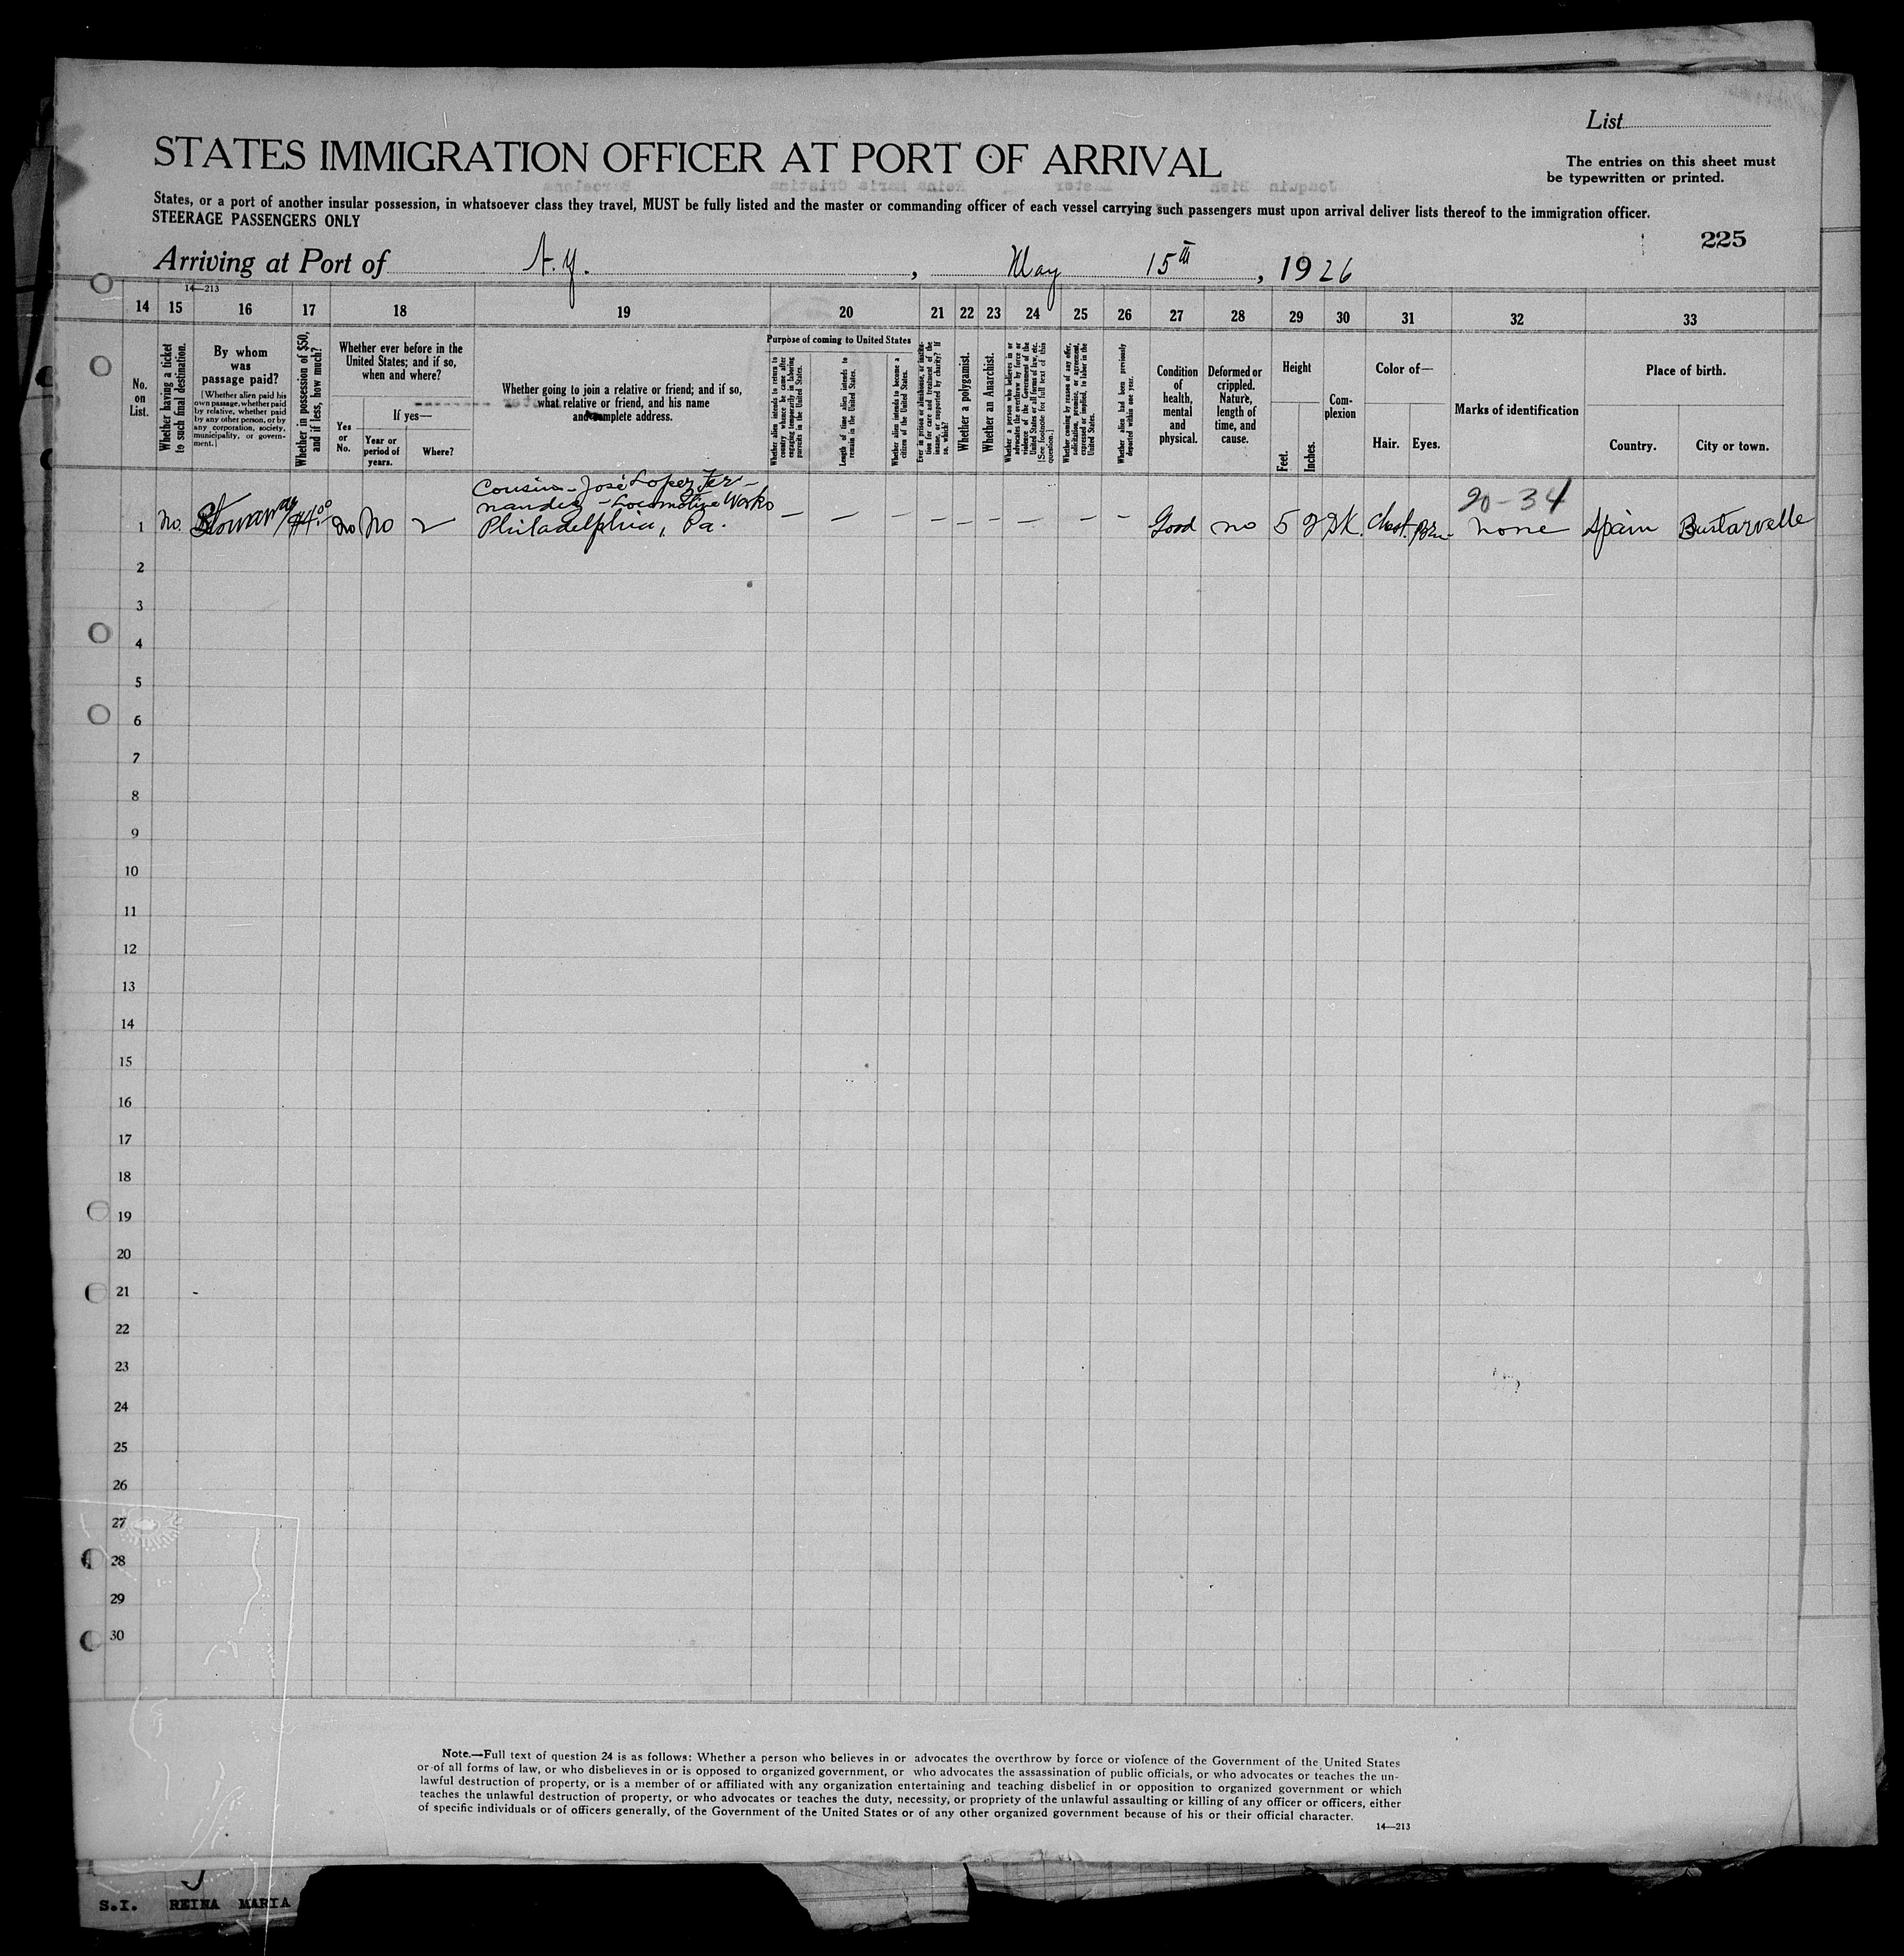 List
STATES IMMIGRATION OFFICER AT PORT OF ARRIVAL
The entries on this sheet must
be typewritten or printed.
States, or a port of another insular possession, in whatsoever class they travel, MUST be fully listed and the master or commanding officer of each vessel carrying such passengers must upon arrival deliver lists thereof to the immigration officer.
STEERAGE PASSENGERS ONLY
225
Arriving at Port of N.Y. , May 15th , 1926
14—213
14 15 16 17 18 19 20 21 22 23 24 25 26 27 28 29 30 31 32 33
No.
on
List.
Whether having a ticket
to such final destination.
By whom
was
passage paid?
[Whether alien paid his
own passage, whether paid
by relative, whether paid
by any other person, or by
any corporation, society,
municipality, or govern-
ment.]
Whether in possession of $50,
and if less, how much?
Whether ever before in the
United States; and if so,
when and where?
Yes
or
No.
If yes—
Year or
period of
years.
Where?
Whether going to join a relative or friend; and if so,
what relative or friend, and his name
and complete address.
Purpose of coming to United States
Whether alien intends to return to
country whence he came after
engaging temporarily in laboring
pursuits in the United States.
Length of time alien intends to
remain in the United States.
Whether alien intends to become a
citizen of the United States.
Ever in prison or almshouse, or institu-
tion for care and treatment of the
insane, or supported by charity? If
so, which?
Whether a polygamist.
Whether an Anarchist.
Whether a person who believes in or
advocates the overthrow by force or
violence of the Government of the
United States or all forms of law, etc.
[See footnote for full text of this
question.]
Whether coming by reason of any offer,
solicitation, promise, or agreement,
expressed or implied, to labor in the
United States.
Whether alien had been previously
deported within one year.
Condition
of
health,
mental
and
physical.
Deformed or
crippled.
Nature,
length of
time, and
cause.
Height
Feet.
Inches.
Com-
plexion
Color of—
Hair.
Eyes.
Marks of identification
Place of birth.
Country.
City or town.
Cousin - José Lopez Fer-
nandez - Locomotive Works
Philadelphia, Pa.
20-34
1 No. Stowaway $4.00 No No — — — — — — — — — — Good no 5 2 DK. Chest. Brn. none Spain Bustarvelle
2
3
4
5
6
7
8
9
10
11
12
13
14
15
16
17
18
19
20
21
22
23
24
25
26
27
28
29
30
Note.—Full text of question 24 is as follows: Whether a person who believes in or advocates the overthrow by force or violence of the Government of the United States
or of all forms of law, or who disbelieves in or is opposed to organized government, or who advocates the assassination of public officials, or who advocates or teaches the un-
lawful destruction of property, or is a member of or affiliated with any organization entertaining and teaching disbelief in or opposition to organized government or which
teaches the unlawful destruction of property, or who advocates or teaches the duty, necessity, or propriety of the unlawful assaulting or killing of any officer or officers, either
of specific individuals or of officers generally, of the Government of the United States or of any other organized government because of his or their official character.
14—213
S.I. REINA MARIA